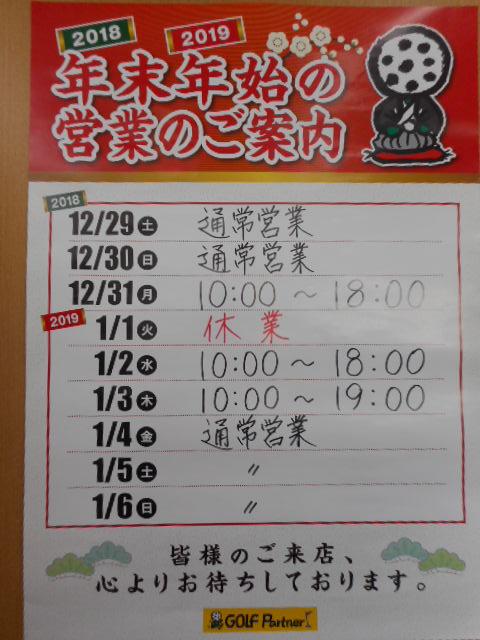 2018 2019
年末年始の
営業のご案内
2018
12/29 土 通常営業
12/30 日 通常営業
12/31 月 10:00 ～ 18:00
2019
1/1 火 休業
1/2 水 10:00 ～ 18:00
1/3 木 10:00 ～ 19:00
1/4 金 通常営業
1/5 土 〃
1/6 日 〃
皆様のご来店、
心よりお待ちしております。
GOLF Partner